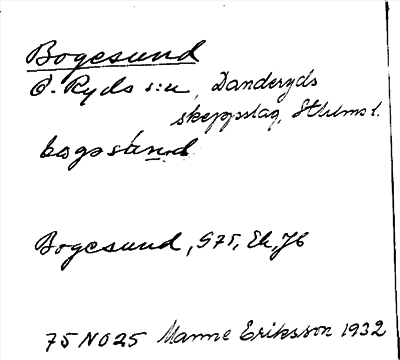 Bogesund
Ö. Ryds s:n, Danderyds
skeppslag, Sthlms l.
bogəsùnd
Bogesund, 975, Ek, Jb
75 NO 25 Manne Eriksson 1932